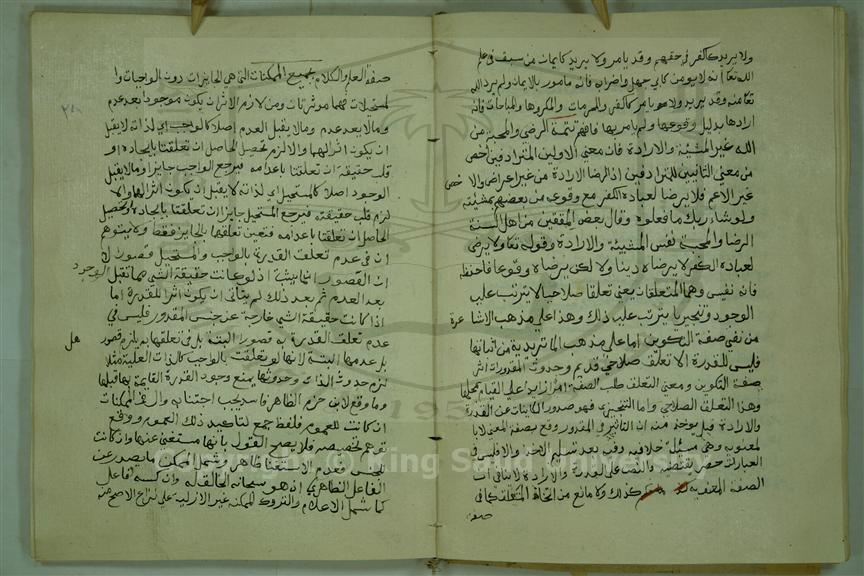 ولا يريد كالكفر في حقهم وقد يامر ولا يريد كايمان من سبق في علم
الله تعا انه لا يومن كابي جهل واضرابه فانه مامور بالايمان ولم يرد الله
تعا منه وقد يريد ولا يامر كالكفر والمحرمات والمكروها والمباحات فانه
ارادها بدليل وقوعها ولم يامر بها فافهم تتمة الرضى والمحبة من
الله غير المشيئة والارادة فان معنى الاولين المترادفين اخص
من معنى الثانيين المترادفين اذ الرضا الارادة من غير اعتراض والا خص
غير الاعم فلا يرضا لعباده الكفر مع وقوعه من بعضهم بمشيئته
ولو شاء ربك ما فعلوه وقال بعض المحققين من اهل السنة
الرضا والمحبة نفس المشيئة والارادة وقوله تعا ولا يرضى
لعباده الكفر لا يرضاه دينا ولا لكن يرضاه وقوعا فاحفظه
فانه نفيس وهما المتعلقان يعني تعلقا صلاحيا لا يترتب عليه
الوجود وتنجيزيا يترتب عليه ذلك وهذا على مذهب الاشاعرة
من نفي صفة التكوين اما على مذهب الماتريدية من اثباتها
فليس للقدرة الا تعلق صلاحي قديم وحدوث المقدورات اثر
بصفة التكوين ومعنى التعلق طلب الصفة امرا زايدا على القيام بمحلها
وهذا التعلق الصلاحي واما التنجيزي فهو صدور الكاينات عن القدرة
والارادة قيل يوخذ منه ان التاثير في المقدور وقع بصفة المعنى لا با
لمعنوية وهي مسئلة خلافية
الصفة المعنوية كذلك ولا مانع من اتحاد المتعلق كما في
صفة
صفة العلم والكلام بجميع الممكنات التي هي الجايزات دون الواجبات وا
لمستحيلات فهما موثرتان ومن لازم الاثر ان يكون موجودا بعد عدم
وما لا بعد عدم وما لا يقبل العدم اصلا كالواجب اي لذاته لا يقبل
ان يكون اثرا لهما والا لزم تحصيل الحاصل ان تعلقتا بايجاده او
قلب حقيقته ان تعلقتا باعدامه فيرجع الواجب جايزا وما لا يقبل
الوجود اصلا كالمستحيل اي لذاته لا يقبل ان يكون اثرا لهما والا
لزم قلب حقيقته فيرجع المستحيل جايزا ان تعلقتا بايجاده او تحصيل
الحاصل ان تعلقتا باعدامه فتعين تعلقهما بالجايز فقط ولا يتوهم
ان في عدم تعلق القدرة بالواجب والمستحيل قصورا لان
ان القصور انما يثبت اذ لو كانت حقيقة الشي مما تقبل الوجود
بعد العدم ثم بعد ذلك لم يتاتى ان يكون اثرا للقدرة اما
اذا كانت حقيقة الشي خارجة عن جنس المقدور فليس في
عدم تعلق القدرة به قصورا البتة بل في تعلقها به يلزم قصور هل
بل عدمها البتة لانها لو تعلقت بالواجب كالذات العلية مثلا
لزم حدوث الذات وحدوثها يمنع وجود القدرة القايمة بها قبلها
وما وقع لابن حزم الظاهري فاسد يجب اجتنابه وال في الممكنات
ان كانت للعموم فلفظ جميع لتاكيد ذلك العموم ودفع
توهم تخصيصه فلا يصح القول بانها مستغنى عنها وان كانت
للجنس فعدم الاستغنا ظاهر وشمل الممكن ما يصدر عن
الفاعل الظاهري اذ هو سبحانه الخالق له وان كسبه فاعل
كما شمل الاعدام والتروك الممكنة غير الازلية على نزاع الاصح منه
Copyright © King Saud University
1957